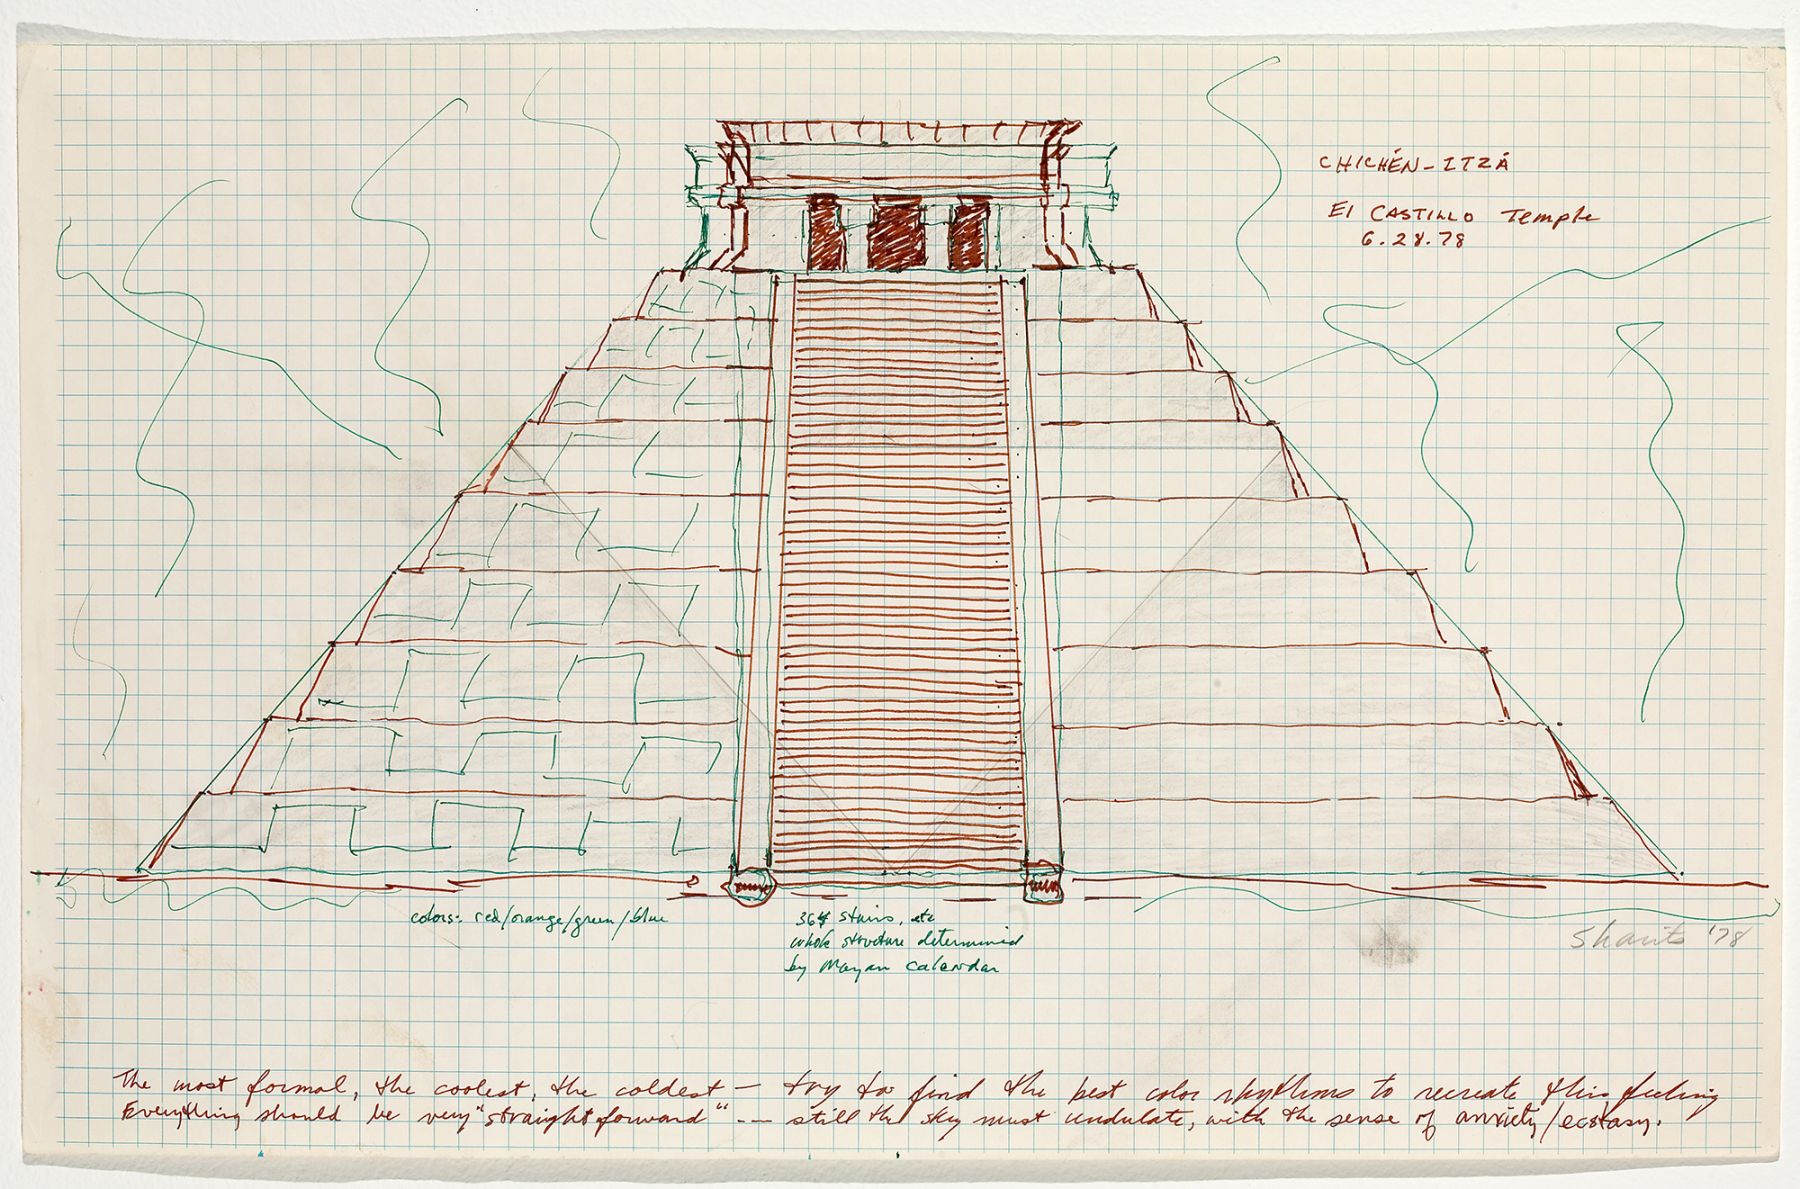 CHICHÉN-ITZÁ
El CASTILLO Temple
6.28.78
colors: red/orange/green/blue
364 stairs, etc
whole structure determined
by Mayan Calendar
Sharits '78
The most formal, the coolest, the coldest — try to find the best color rhythms to recreate this feeling
Everything should be very "straightforward" -- still the sky must undulate, with the sense of anxiety/ecstasy.